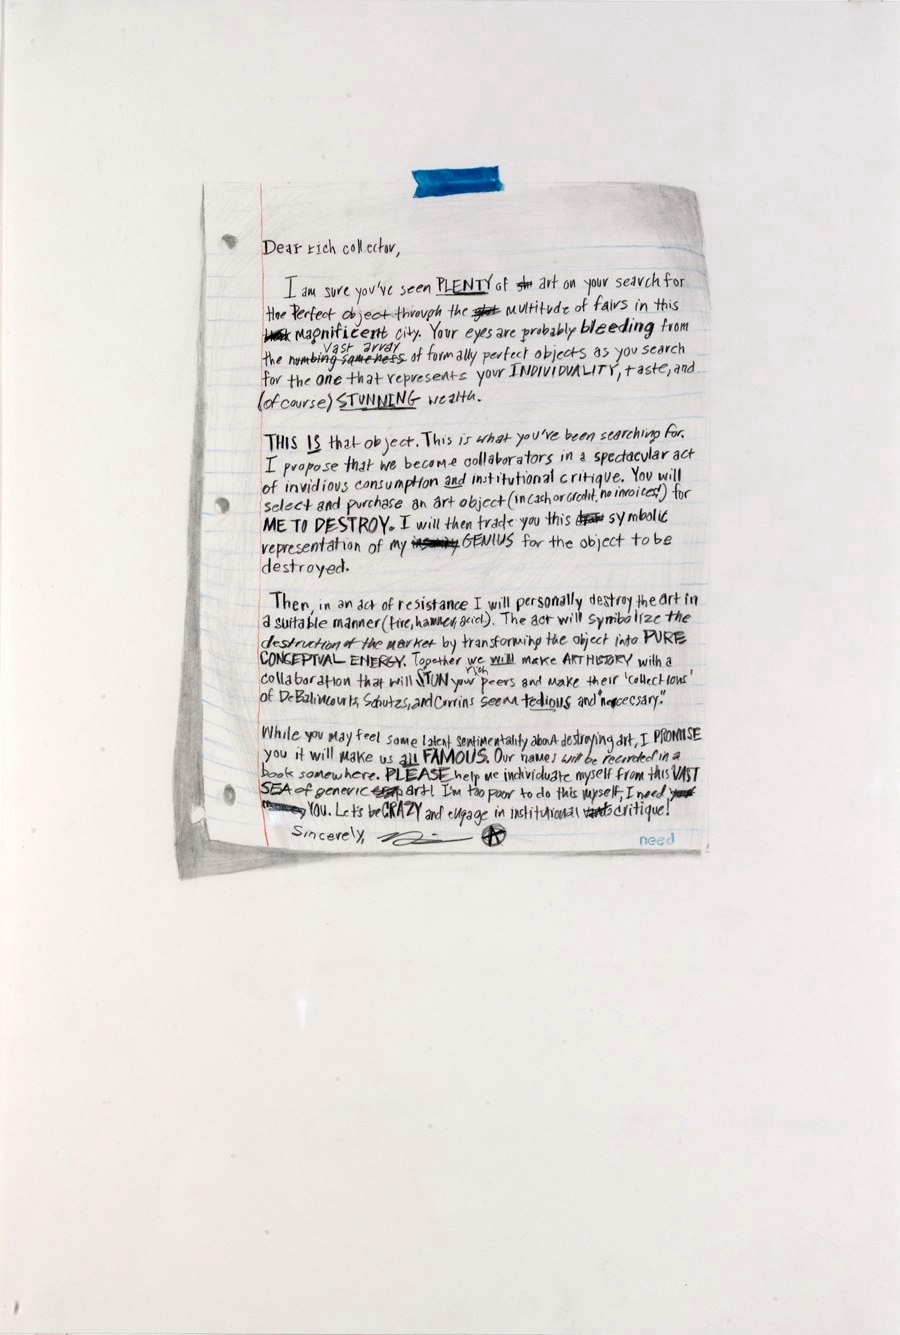 Dear rich collector,
I am sure you've seen PLENTY of art on your search for
the Perfect object through the multitude of fairs in this
magnificent city. Your eyes are probably bleeding from
vast array
the numbing sameness of formally perfect objects as you search
for the one that represents your INDIVIDUALITY, taste, and
(of course) STUNNING wealth.
THIS IS that object. This is what you've been searching for.
I propose that we become collaborators in a spectacular act
of invidious consumption and institutional critique. You will
select and purchase an art object (in cash or credit, no invoices!) for
ME TO DESTROY. I will then trade you this symbolic
representation of my GENIUS for the object to be
destroyed.
Then, in an act of resistance I will personally destroy the art in
a suitable manner (fire, hammer, acid). The act will symbolize the
destruction of the market by transforming the object into PURE
CONCEPTUAL ENERGY. Together we will make ART HISTORY with a
rich
collaboration that will STUN your peers and make their 'collections'
of DeBalincourts, Schutzs, and Currins seem tedious and "necessary."
While you may feel some latent sentimentality about destroying art, I PROMISE
you it will make us all FAMOUS. Our names will be recorded in a
book somewhere. PLEASE help me individuate myself from this VAST
SEA of generic art! I'm too poor to do this myself, I need
YOU. Let's be CRAZY and engage in institutional critique!
Sincerely,
need